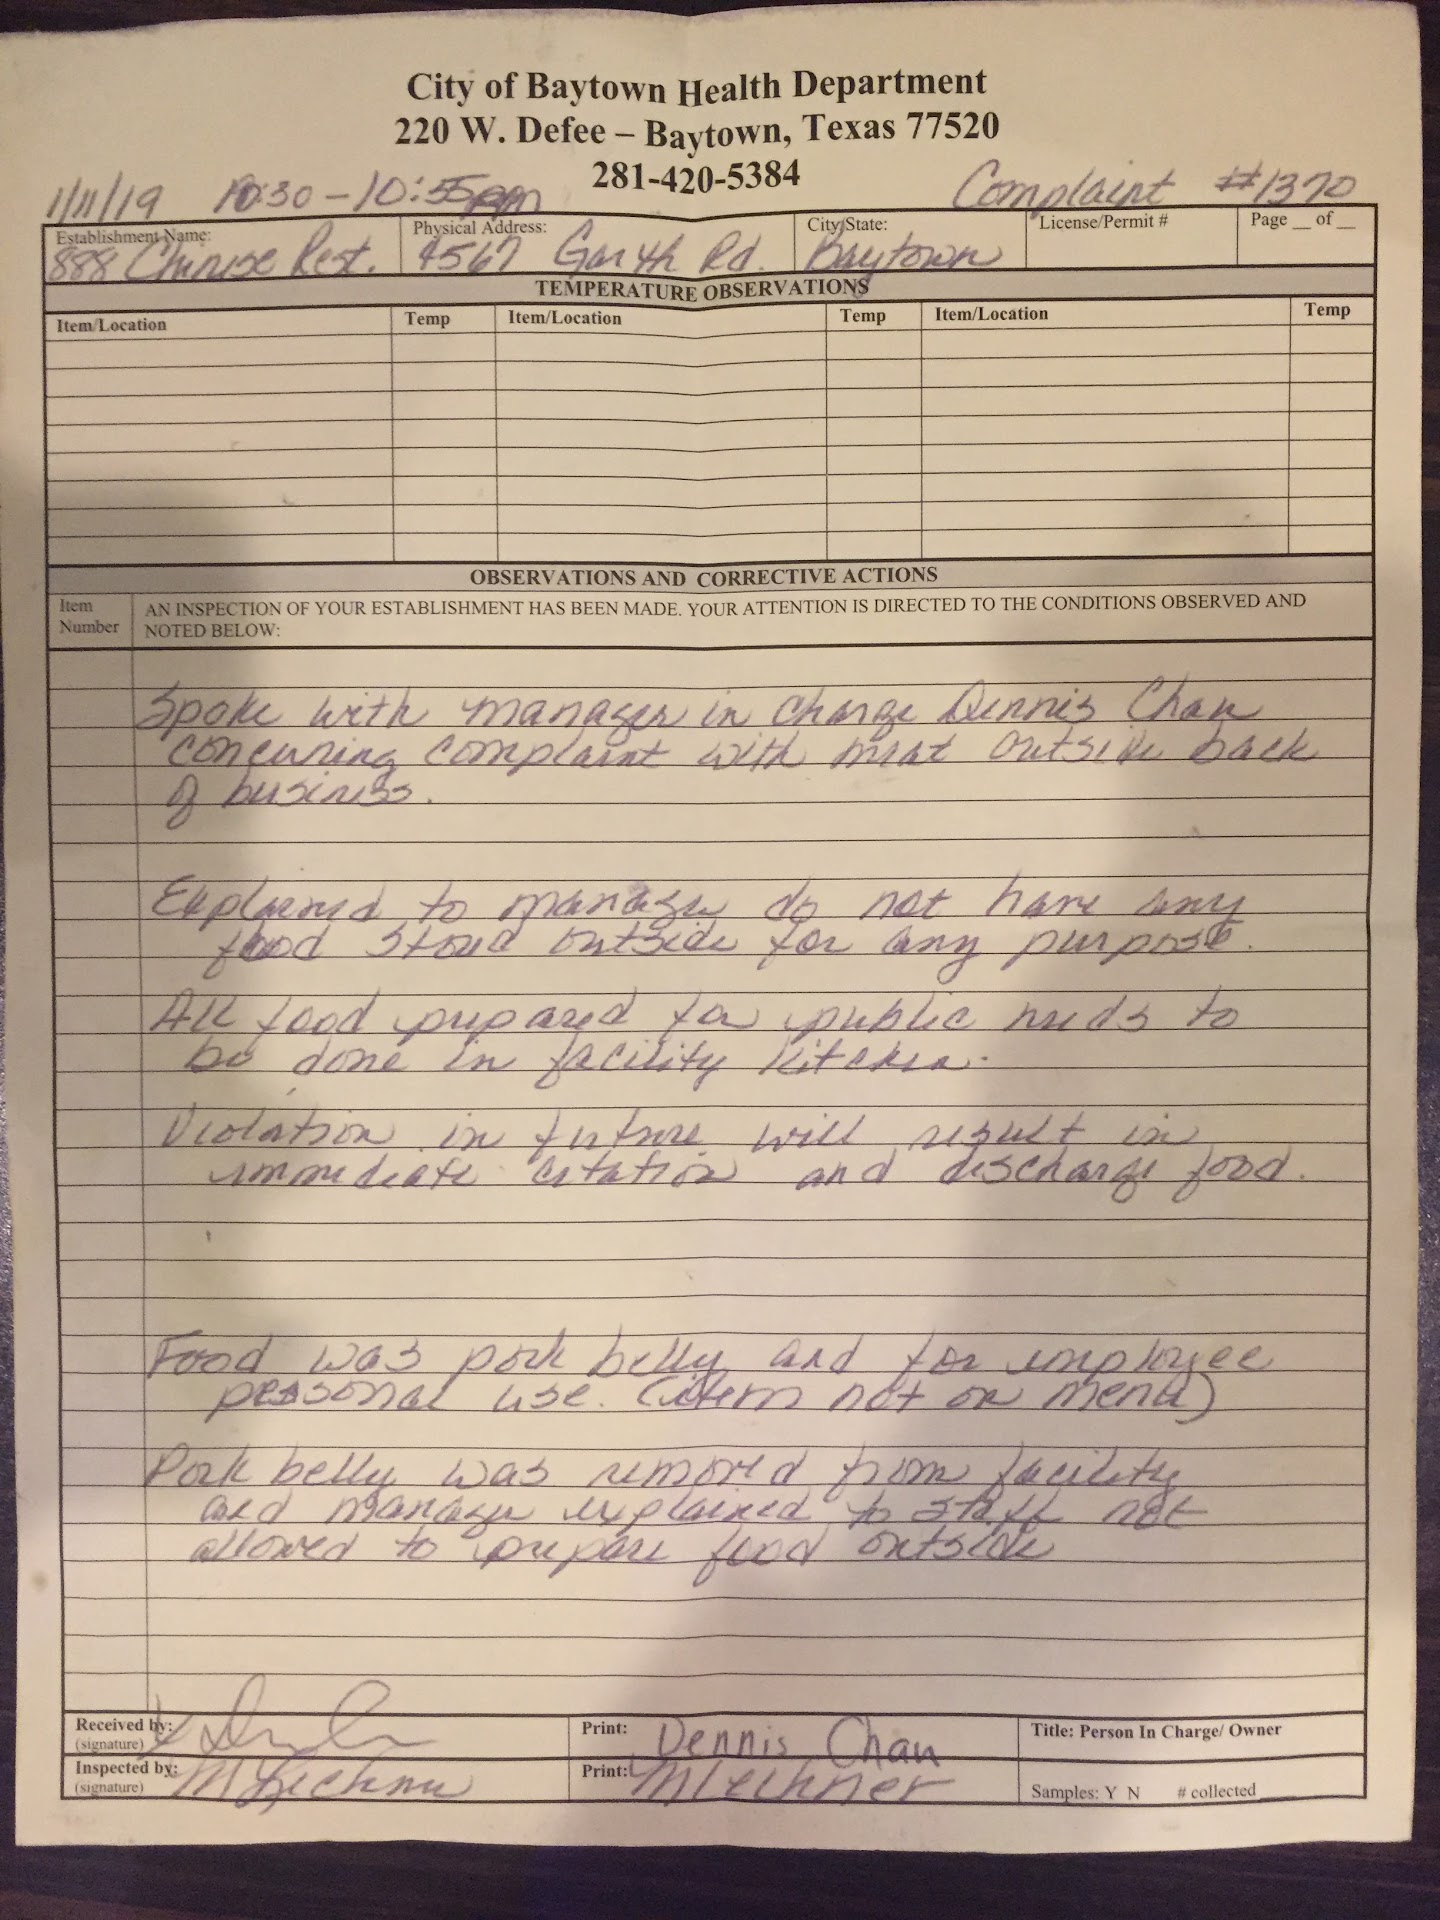 City of Baytown Health Department
220 W. Defee – Baytown, Texas 77520
281-420-5384
1/11/19 10:30 - 10:55 pm Complaint #1370
Establishment Name: Physical Address: City/State: License/Permit # Page __ of __
888 Chinese Rest. 4567 Garth Rd. Baytown
TEMPERATURE OBSERVATIONS
Item/Location Temp Item/Location Temp Item/Location Temp
OBSERVATIONS AND CORRECTIVE ACTIONS
Item Number AN INSPECTION OF YOUR ESTABLISHMENT HAS BEEN MADE. YOUR ATTENTION IS DIRECTED TO THE CONDITIONS OBSERVED AND
NOTED BELOW:
Spoke with manager in charge Dennis Chau
concerning complaint with meat outside back
of business.
Explained to manager do not have any
food stored outside for any purpose.
All food prepared for public needs to
be done in facility kitchen.
Violation in future will result in
immediate citation and discharge food.
Food was pork belly and for employee
personal use. (item not on menu)
Pork belly was removed from facility
and manager explained to staff not
allowed to prepare food outside
Received by: Print: Dennis Chau Title: Person In Charge/ Owner
(signature)
Inspected by: M Lechner Print: M Lechner
(signature) Samples: Y N # collected ____